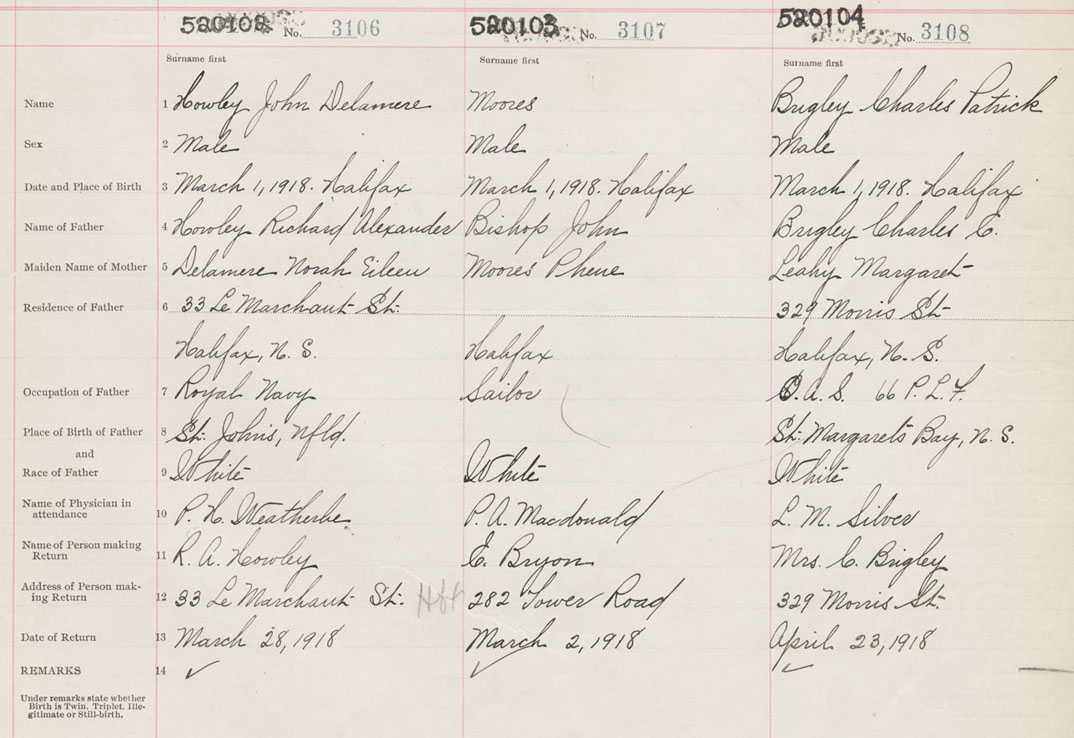 520102 No. 3106 520103 No. 3107 520104 No. 3108
Surname first Surname first Surname first
Name 1 Howley John Delamere Moores Brigley Charles Patrick
Sex 2 Male Male Male
Date and Place of Birth 3 March 1, 1918. Halifax March 1, 1918. Halifax March 1, 1918. Halifax
Name of Father 4 Howley Richard Alexander Bishop John Brigley Charles E.
Maiden Name of Mother 5 Delamere Norah Eileen Moores Phene Leahy Margaret
Residence of Father 6 33 Le Marchant St. 329 Morris St
Halifax, N. S. Halifax Halifax, N. S.
Occupation of Father 7 Royal Navy Sailor O. A. S. 66 P. L. F.
Place of Birth of Father 8 St. John's, Nfld. St. Margarets Bay, N. S.
and
Race of Father 9 White White White
Name of Physician in
attendance 10 P. H. Weatherbe P. A. Macdonald L. M. Silver
Name of Person making
Return 11 R. A. Howley E. Bryon Mrs. C. Brigley
Address of Person mak-
ing Return 12 33 Le Marchant St. Hfx 282 Tower Road 329 Morris St.
Date of Return 13 March 28, 1918 March 2, 1918 April 23, 1918
REMARKS 14 ✓ ✓ ✓
Under remarks state whether
Birth is Twin, Triplet, Ille-
gitimate or Still-birth.